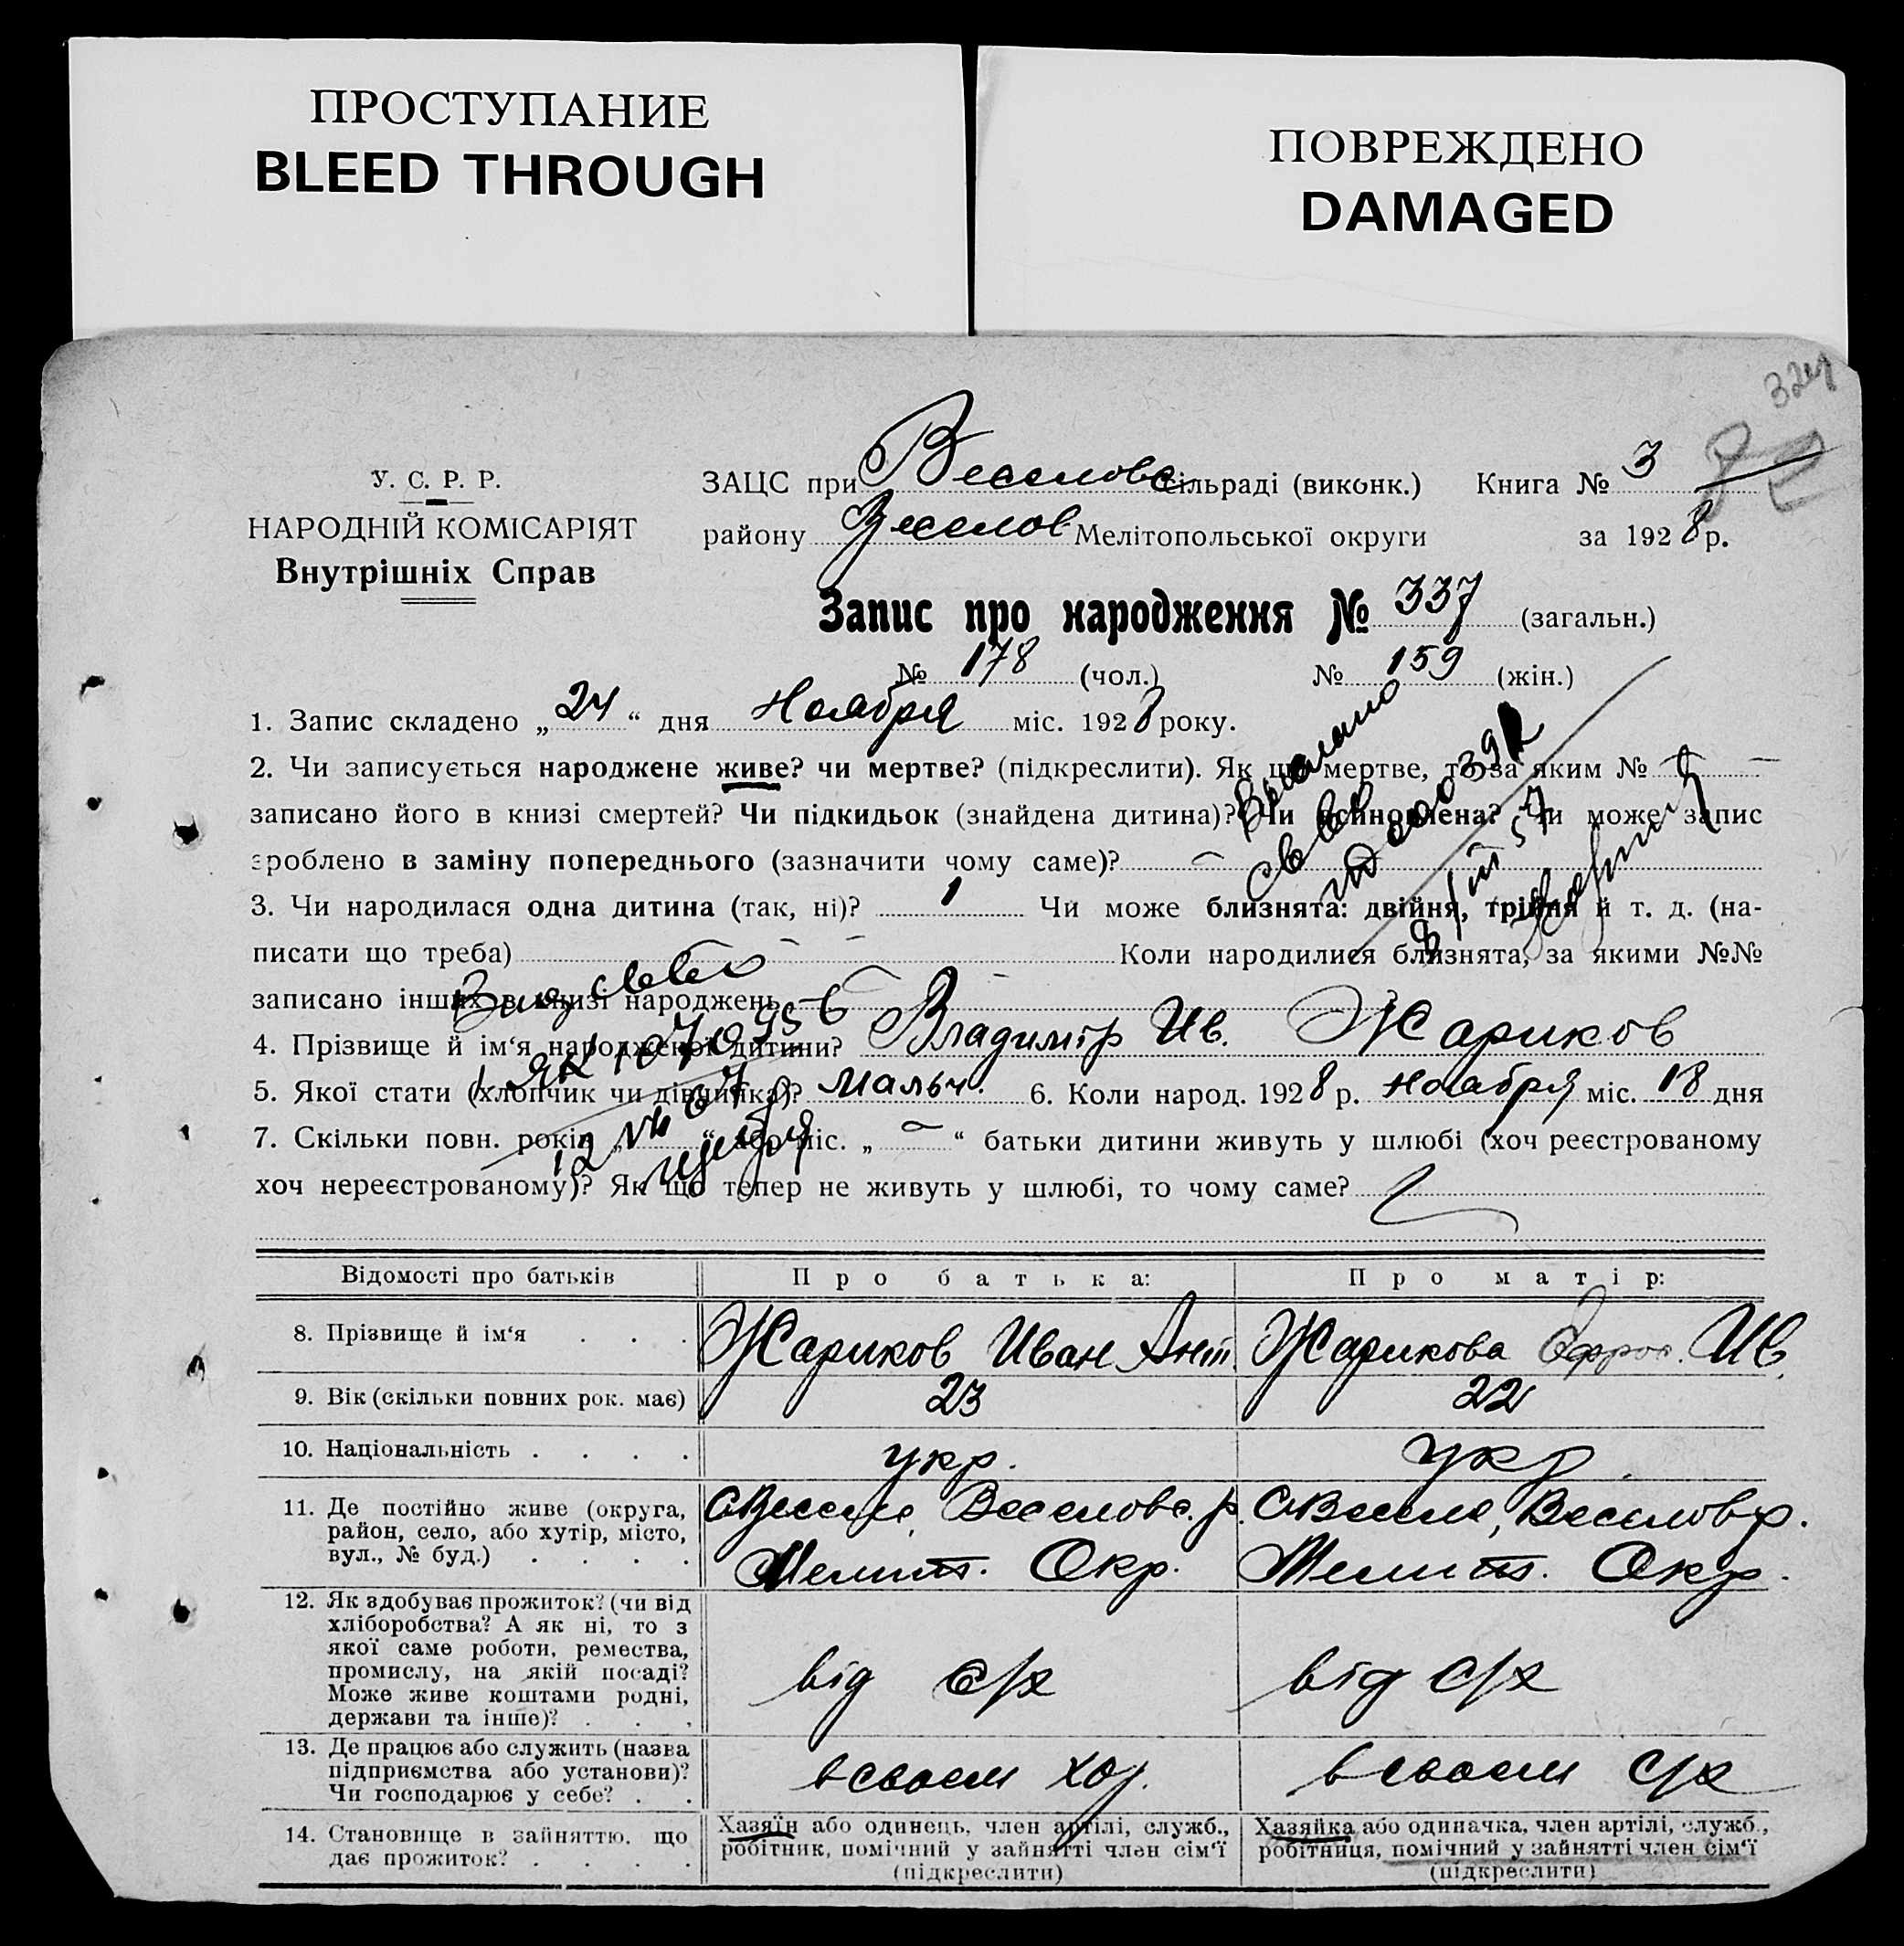 ПРОСТУПАНИЕ
BLEED THROUGH
ПОВРЕЖДЕНО
DAMAGED
У. С. Р. Р.
НАРОДНІЙ КОМІСАРІЯТ
Внутрішніх Справ
ЗАЦС при Веселовс сільраді (виконк.) Книга № 3
району Веселов Мелітопольської округи за 1928 р.
Запис про народження № 337 (загальн.)
№ 178 (чол.) № 159 (жін.)
1. Запис складено „24“ дня Ноября міс. 1928 року.
2. Чи записується народжене живе? чи мертве? (підкреслити). Як що мертве, то за яким №
записано його в книзі смертей? Чи підкидьок (знайдена дитина)? Чи всиновлена? Чи може запис
зроблено в заміну попереднього (зазначити чому саме)?
3. Чи народилася одна дитина (так, ні)? 1 Чи може близнята: двійня, трійня й т. д. (на-
писати що треба) Коли народилися близнята, за якими №№
записано інших в книзі народжень
4. Прізвище й ім‘я народженої дитини? Владимір Ив. Жариков
5. Якої стати (хлопчик чи дівчинка)? мальч. 6. Коли народ. 1928 р. ноября міс. 18 дня
7. Скільки повн. років „ “ або міс. „ — “ батьки дитини живуть у шлюбі (хоч реєстрованому
хоч нереєстрованому)? Як що тепер не живуть у шлюбі, то чому саме?
Відомості про батьків Про батька: Про матір:
8. Прізвище й ім‘я Жариков Иван Ант. Жарикова Ефрос. Ив
9. Вік (скільки повних рок. має) 23 22
10. Національність укр. укр
11. Де постійно живе (округа,
район, село, або хутір, місто,
вул., № буд.)
Веселовс. р.
Мелит. Окр.
Веселов р.
Мелит. Окр.
12. Як здобуває прожиток? (чи від
хліборобства? А як ні, то з
якої саме роботи, ремества,
промислу, на якій посаді?
Може живе коштами родні,
держави та інше)?
від с/х
від с/х
13. Де працює або служить (назва
підприємства або установи)?
Чи господарює у себе?
в своем хоз.
в своем с/х
14. Становище в зайняттю, що
дає прожиток?
Хазяїн або одинець, член артілі, служб.,
робітник, помічний у зайнятті член сім‘ї
(підкреслити)
Хазяйка або одиначка, член артілі, служб.,
робітниця, помічний у зайнятті член сім‘ї
(підкреслити)